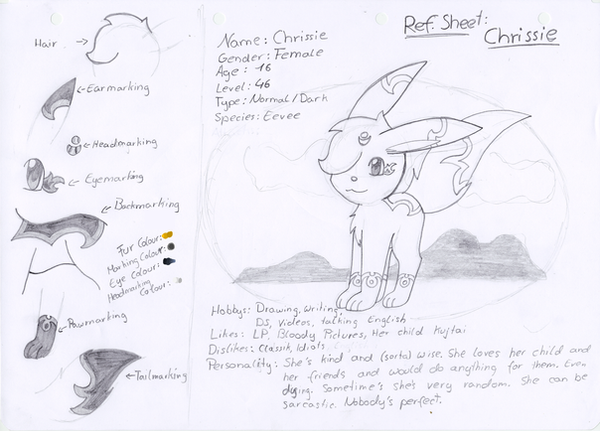 Ref. Sheet:
Chrissie
Name: Chrissie
Gender: Female
Age: 16
Level: 46
Type: Normal/Dark
Species: Eevee
Hair
Earmarking
Headmarking
Eyemarking
Backmarking
Fur Colour:
Marking Colour:
Eye Colour:
Headmarking Colour:
Pawmarking
Tailmarking
Hobbys: Drawing, Writing,
DS, Videos, talking English
Likes: LP, Bloody Pictures, Her child Kujtai
Dislikes: Classik, Idiots
Personality: She's kind and (sorta) wise. She loves her child and
her friends and would do anything for them. Even
dying. Sometime's she's very random. She can be
sarcastic. Nobody's perfect.